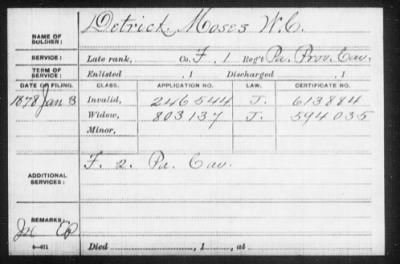 NAME OF SOLDIER: Detrick, Moses W. C.
SERVICE: Late rank, Co. F, 1 Reg't Pa. Prov. Cav.
TERM OF SERVICE: Enlisted , 1 Discharged , 1
DATE OF FILING. CLASS. APPLICATION NO. LAW. CERTIFICATE NO.
1878 Jan 3 Invalid, 246544 J. 613884
Widow, 803137 J. 594035
Minor,
ADDITIONAL SERVICES: F. 2. Pa. Cav.
REMARKS:
Died , 1 , at